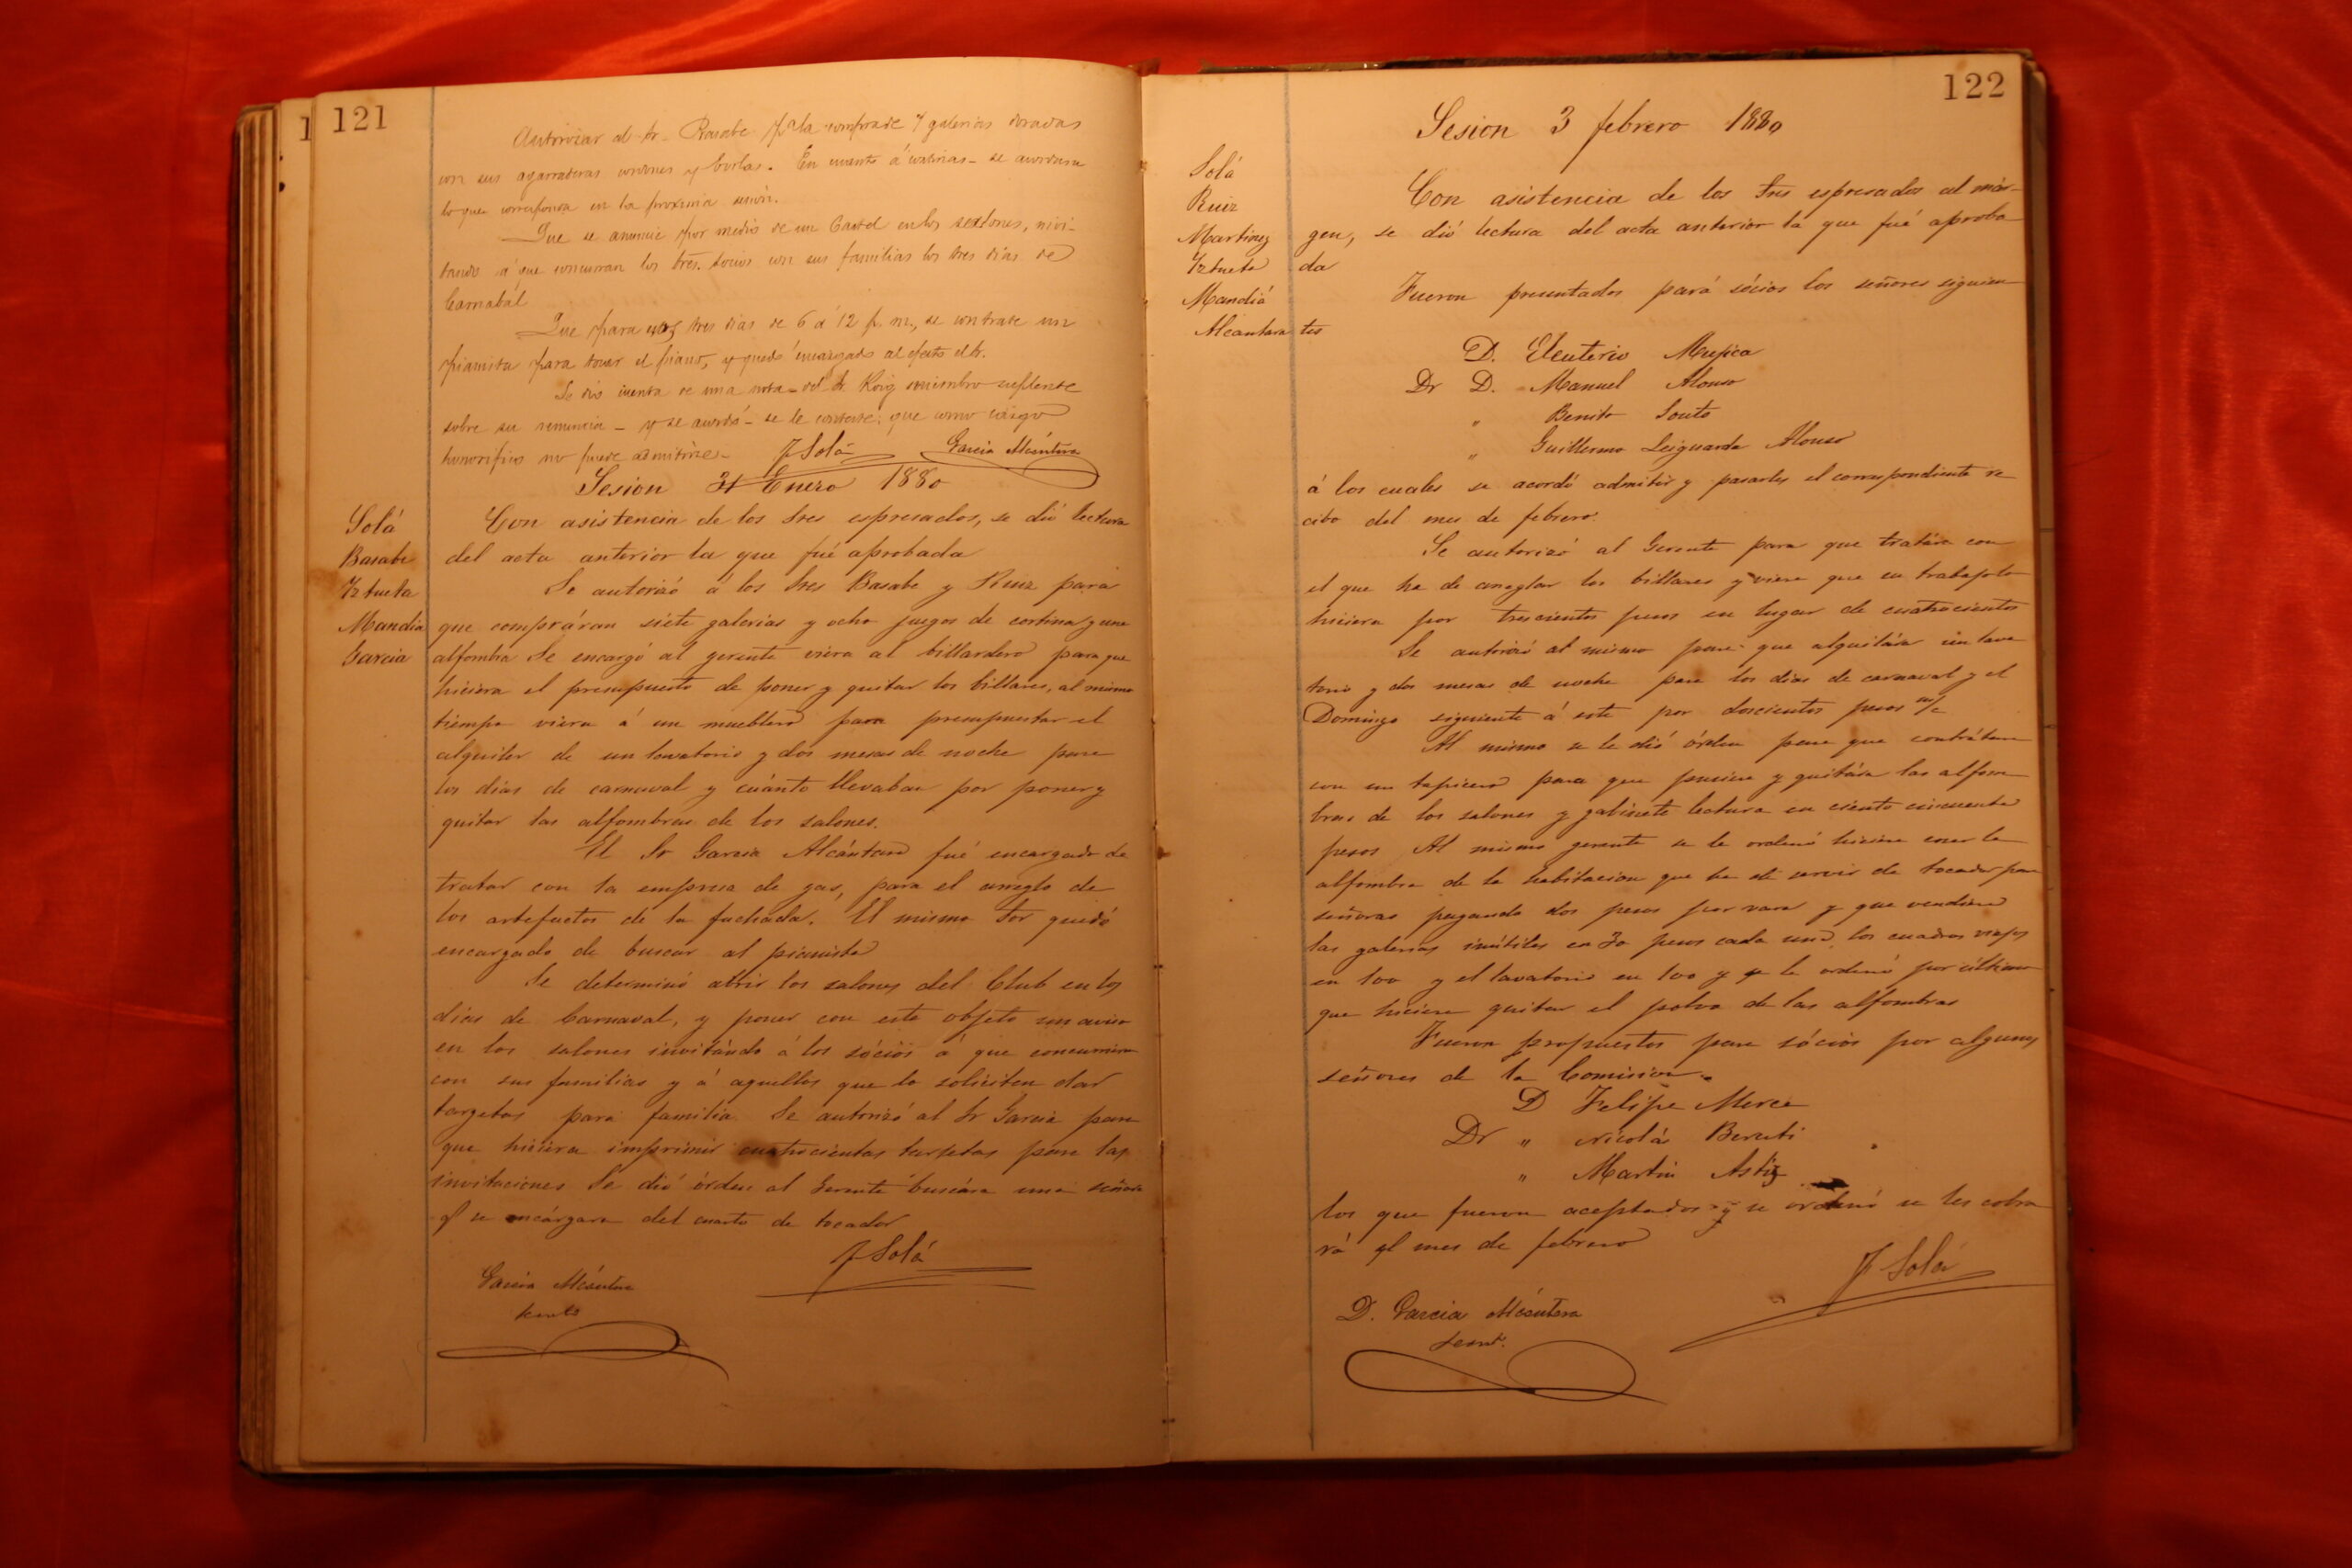 121
Autorizar al Sr. Basabe p.ª la compra de 7 galerias doradas
con sus agarraderas cordones y borlas. En cuanto á cortinas - se acordara
lo que corresponda en la proxima sesion.
Que se anuncie por medio de un Cartel en los salones, invi-
tando á que concurran los Sres. socios con sus familias los tres dias de
Carnabal
Que para los tres dias de 6 á 12 p. m., se contrate un
pianista para tocar el piano, y quedó encargado al efecto el Sr.
Se dió cuenta de una nota del Sr Roig miembro suplente
sobre su renuncia - y se acordó - se le conteste: que como cargo
honorifico no puede admitirse -
J Solá
Garcia Alcántara
Sesion 31 Enero 1880
Solá
Basabe
Iztueta
Mandiá
Garcia
Con asistencia de los Sres espresados, se dió lectura
del acta anterior la que fué aprobada
Se autorizó á los Sres Basabe y Ruiz para
que compráran siete galerias y ocho juegos de cortinas y una
alfombra Se encargó al gerente viera al billardero para que
hiciera el presupuesto de poner y quitar los billares, al mismo
tiempo viera á un mueblero para presupuestar el
alquiler de un lavatorio y dos mesas de noche para
los dias de carnaval y cuánto llevaban por poner y
quitar las alfombras de los salones.
El Sr Garcia Alcántara fué encargado de
tratar con la empresa de gas, para el arreglo de
los artefactos de la fachada. El mismo Sor quedó
encargado de buscar al pianista
Se determinó abrir los salones del Club en los
dias de Carnaval, y poner con este objeto un aviso
en los salones invitándo á los sócios á que concurriran
con sus familias y á aquellos que lo soliciten dar
targetas para familia Se autorizó al Sr Garcia para
que hiciera imprimir cuatrocientas tarjetas para las
invitaciones Se dió órden al Gerente buscára una señora
q̃ se encárgara del cuarto de tocador
J Solá
Garcia Alcántara
122
Sesion 3 febrero 1880
Solá
Ruiz
Martinez
Iztueta
Mandiá
Alcantara
Con asistencia de los Sres espresados al már-
gen, se dió lectura del acta anterior la que fué aproba
da
Fueron presentados pará sócios los señores siguien
tes
D. Eleuterio Mujica
Dr D. Manuel Alonso
" Benito Souto
" Guillermo Leiguarda Alonso
á los cuales se acordó admitir y pasarles el correspondiente re
cibo del mes de febrero.
Se autorizó al Gerente para que tratára con
el que ha de arreglar los billares y viera que su trabajo lo
hiciera por trescientos pesos en lugar de cuatrocientos
Se autorizó al mismo para que alquilára un lava
torio y dos mesas de noche para los dias de carnaval y el
Domingo siguiente á este por doscientos pesos m/c
Al mismo se le dió órden para que contrátara
con un tapicero para que pusiera y quitára las alfom
bras de los salones y gabinete lectura en ciento cincuenta
pesos Al mismo gerente se le ordenó hiciera coser la
alfombra de la habitacion que ha de servir de tocador para
señoras pagando dos pesos por vara y que vendiera
las galerias inútiles en 30 pesos cada una, los cuadros viejos
en 100 y el lavatorio en 100 y se le ordenó por último
que hiciera quitar el polvo de las alfombras
Fueron propuestos para sócios por algunos
señores de la Comision.
D Felipe Merce
Dr " Nicolás Beruti
" Martin Astiz
los que fueron aceptados y se ordenó se les cobra
rá el mes de febrero
J Solá
D. Garcia Alcántara